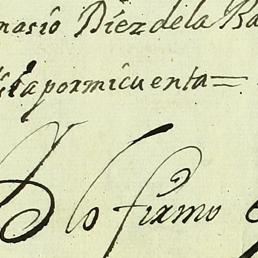 nasio Diez de la Ba
sta por mi cuenta =
lo firmo